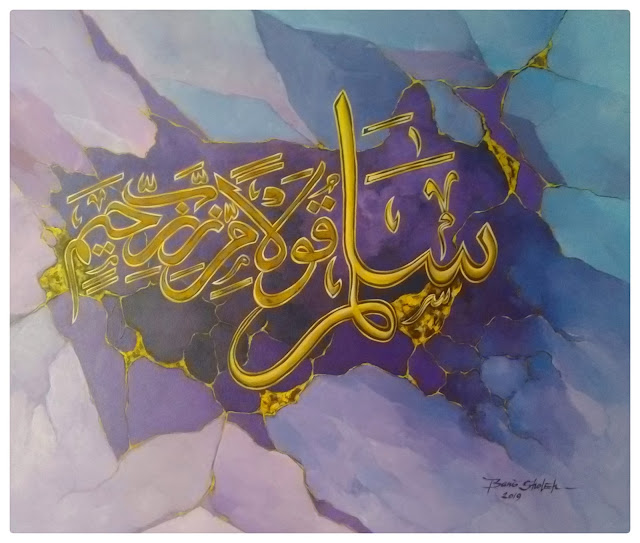 سَلٰمٌ قَوْلًا مِّن رَّبٍّ رَّحِيمٍ
Sholeh
2019